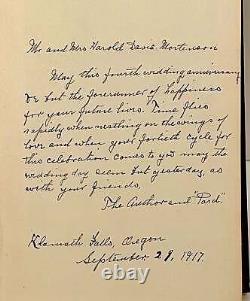 Mr and Mrs Harold Davis Mortenson
May this fourth wedding anniversary
be but the forerunner of happiness
for your future lives. Time flies
rapidly when nestling on the wings of
love and when your fortieth cycle for
this celebration comes to you may the
wedding day seem but yesterday, as
with your friends.
The Author and "Pard"
Klamath Falls, Oregon
September 29, 1917.
© ebaumsetc.com